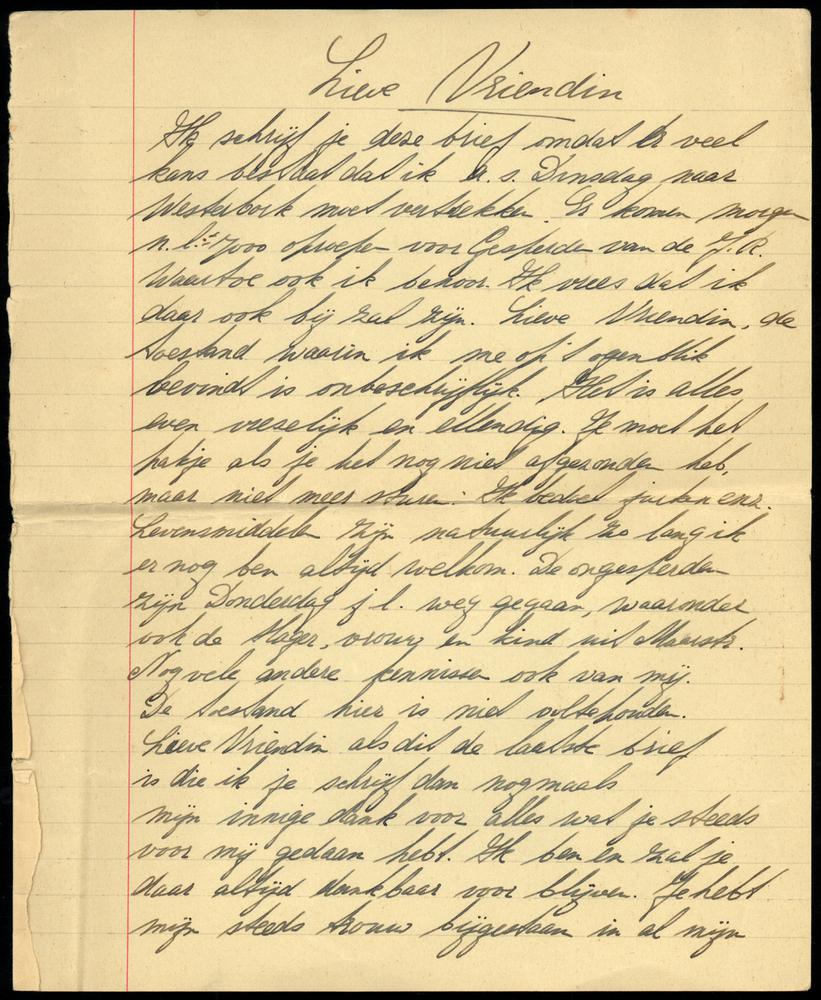 Lieve Vriendin
Ik schrijf je deze brief omdat er veel
kans bestaat dat ik a.s. Dinsdag naar
Westerbork moet vertrekken. Er komen morgen
n.l. 7000 oproepen voor Gesperden van de J.R.
Waartoe ook ik behoor. Ik vrees dat ik
daar ook bij zal zijn. Lieve Vriendin, de
toestand waarin ik me op 't ogenblik
bevindt is onbeschrijflijk. Het is alles
even vreselijk en ellendig. Je moet het
pakje als je het nog niet afgezonden heb,
maar niet meer sturen. Ik bedoel jurken enz.
Levensmiddelen zijn natuurlijk zo lang ik
er nog ben altijd welkom. De ongesperden
zijn Donderdag j l. weg gegaan, waaronder
ook de slager, vrouw en kind uit Maarstr.
Nog vele andere kennissen ook van mij.
De toestand hier is niet vol te houden.
Lieve Vriendin als dit de laatste brief
is die ik je schrijf dan nogmaals
mijn innige dank voor alles wat je steeds
voor mij gedaan hebt. Ik ben en zal je
daar altijd dankbaar voor blijven. Je hebt
mijn steeds trouw bijgestaan in al mijn